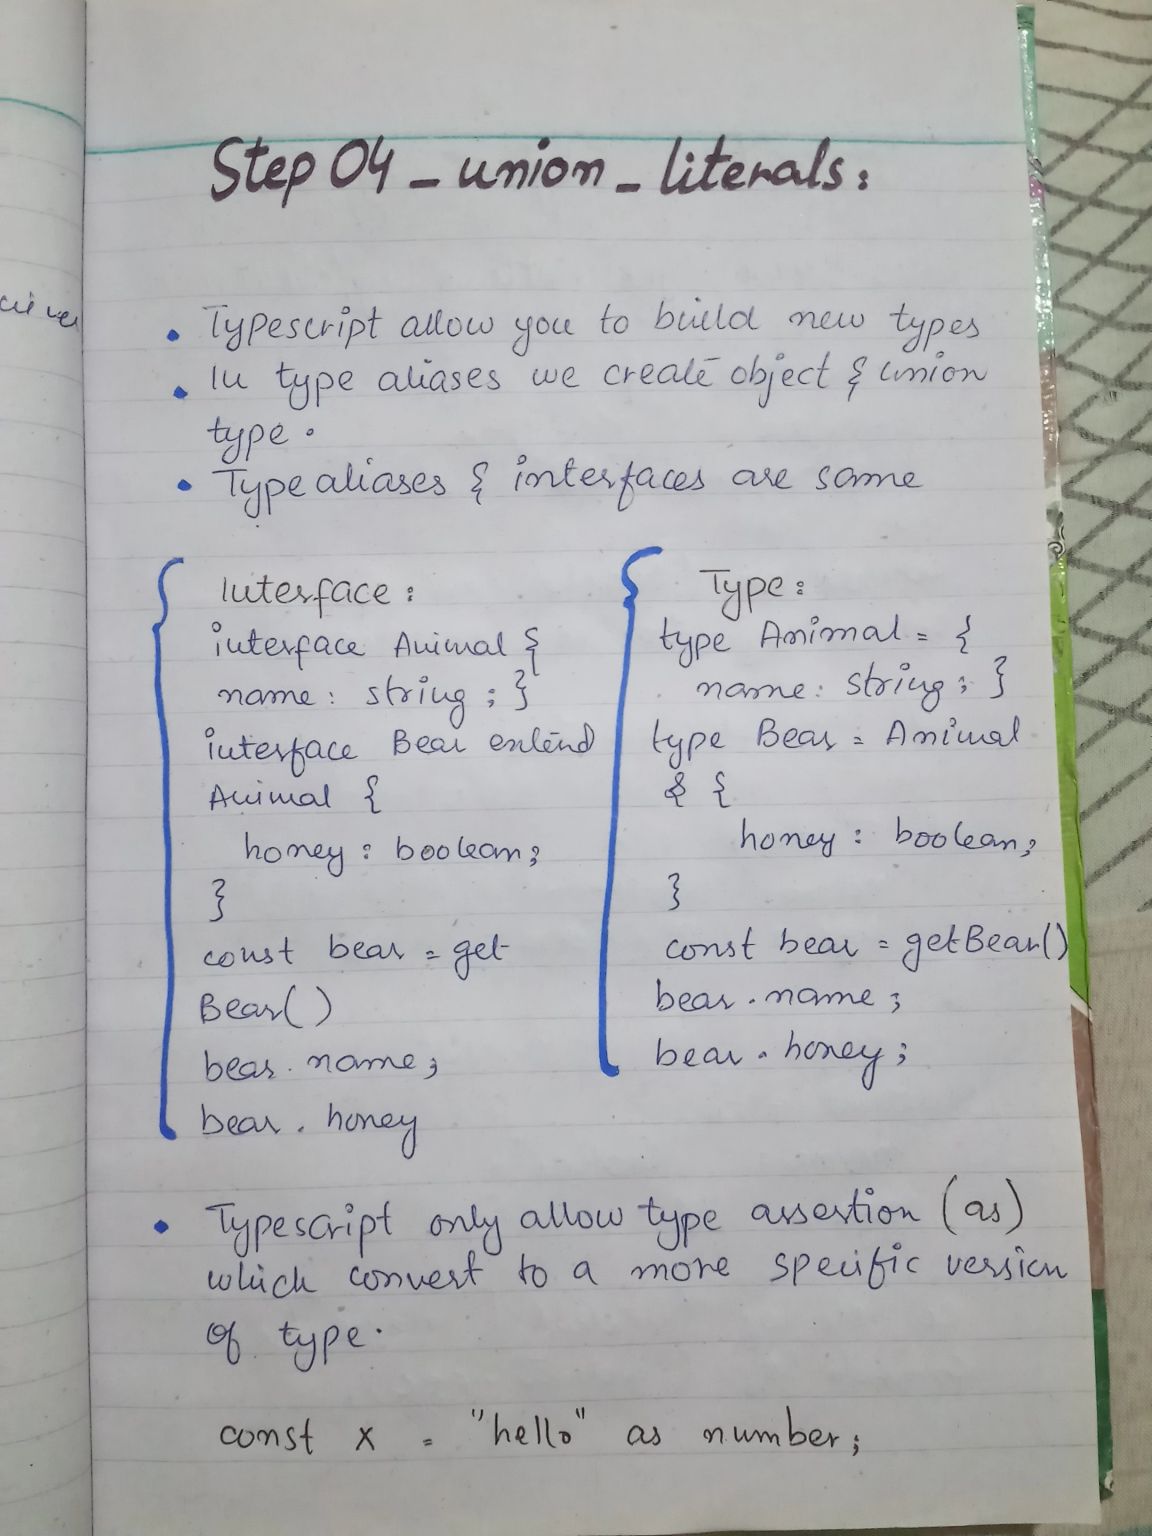 Step 04 _ union _ literals:
• Typescript allow you to build new types
• In type aliases we create object & union
type.
• Type aliases & interfaces are same
Interface:
interface Animal {
name: string; }
interface Bear extend
Animal {
honey: boolean;
}
const bear = get
Bear()
bear.name;
bear.honey
Type:
type Animal = {
name: string; }
type Bear = Animal
& {
honey: boolean;
}
const bear = getBear()
bear.name;
bear.honey;
• Typescript only allow type assertion (as)
which convert to a more specific version
of type.
const x = "hello" as number;